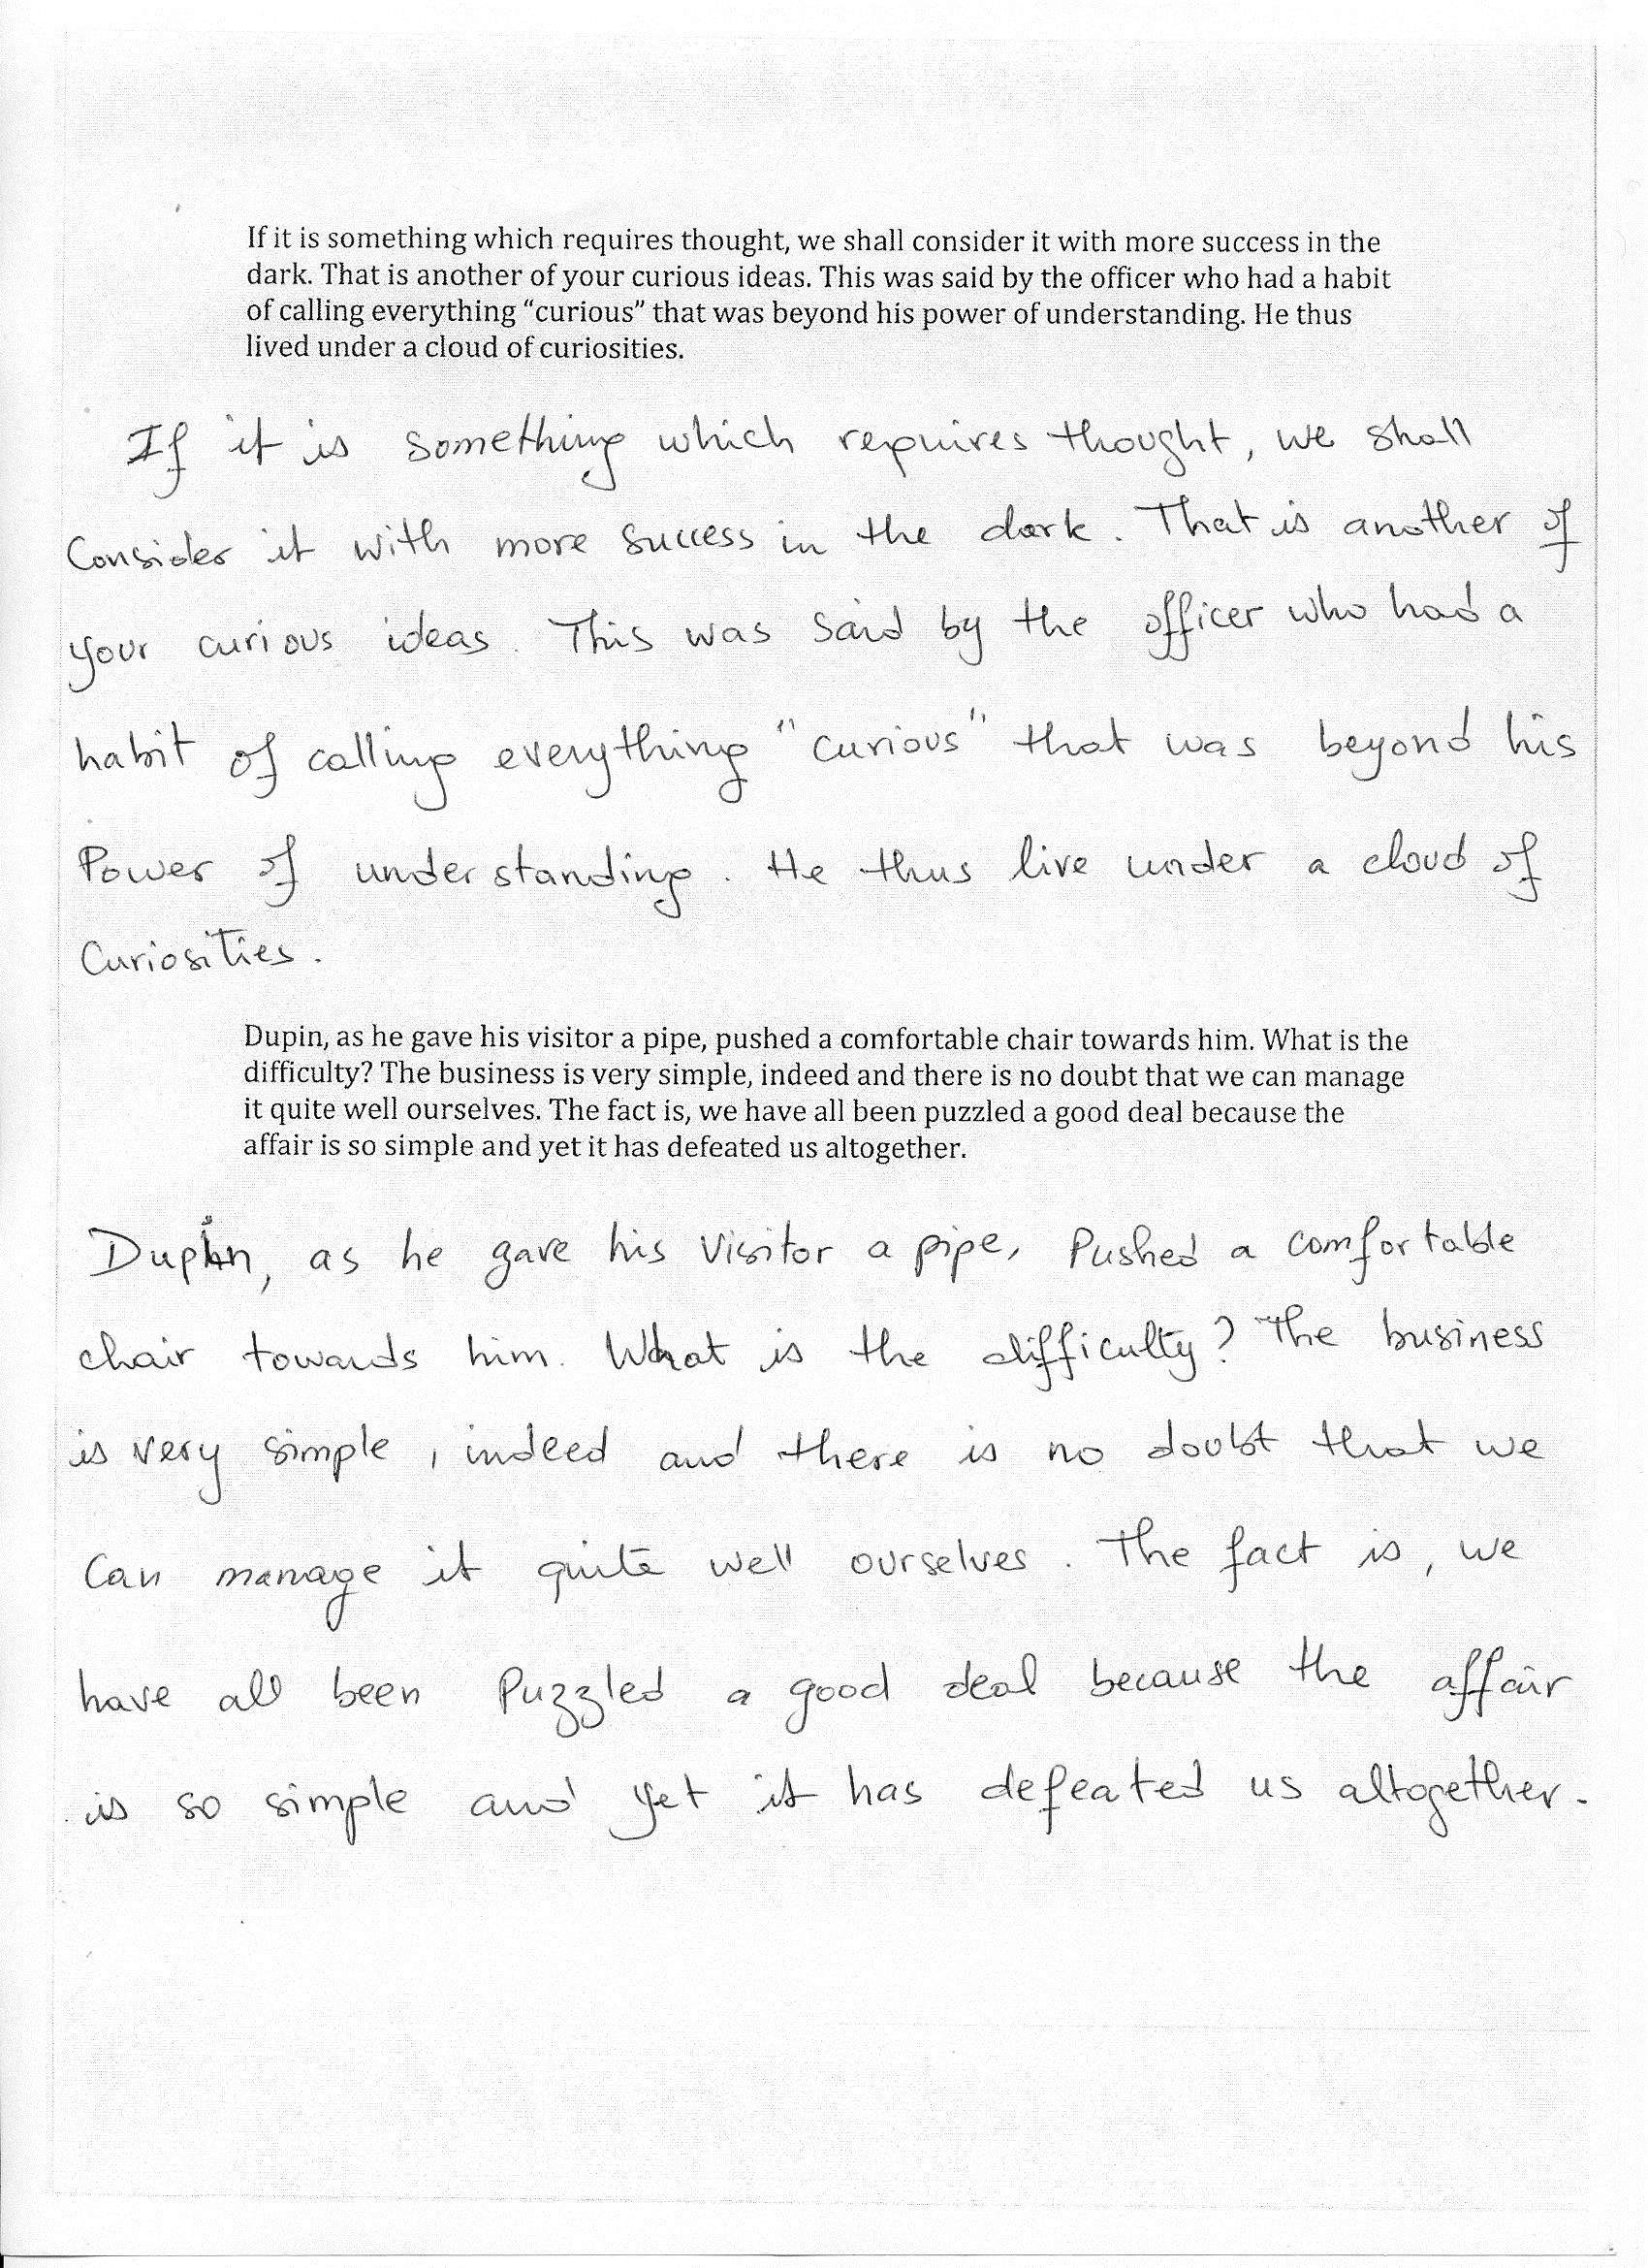 If it is something which requires thought, we shall consider it with more success in the
dark. That is another of your curious ideas. This was said by the officer who had a habit
of calling everything “curious” that was beyond his power of understanding. He thus
lived under a cloud of curiosities.
If it is something which requires thought, we shall
Consider it with more success in the dark. That is another of
your curious ideas. This was said by the officer who had a
habit of calling everything "curious" that was beyond his
Power of understanding. He thus live under a cloud of
Curiosities.
Dupin, as he gave his visitor a pipe, pushed a comfortable chair towards him. What is the
difficulty? The business is very simple, indeed and there is no doubt that we can manage
it quite well ourselves. The fact is, we have all been puzzled a good deal because the
affair is so simple and yet it has defeated us altogether.
Dupin, as he gave his visitor a pipe, Pushed a comfortable
chair towards him. What is the difficulty? The business
is very simple, indeed and there is no doubt that we
Can manage it quite well ourselves. The fact is, we
have all been Puzzled a good deal because the affair
is so simple and yet it has defeated us altogether.